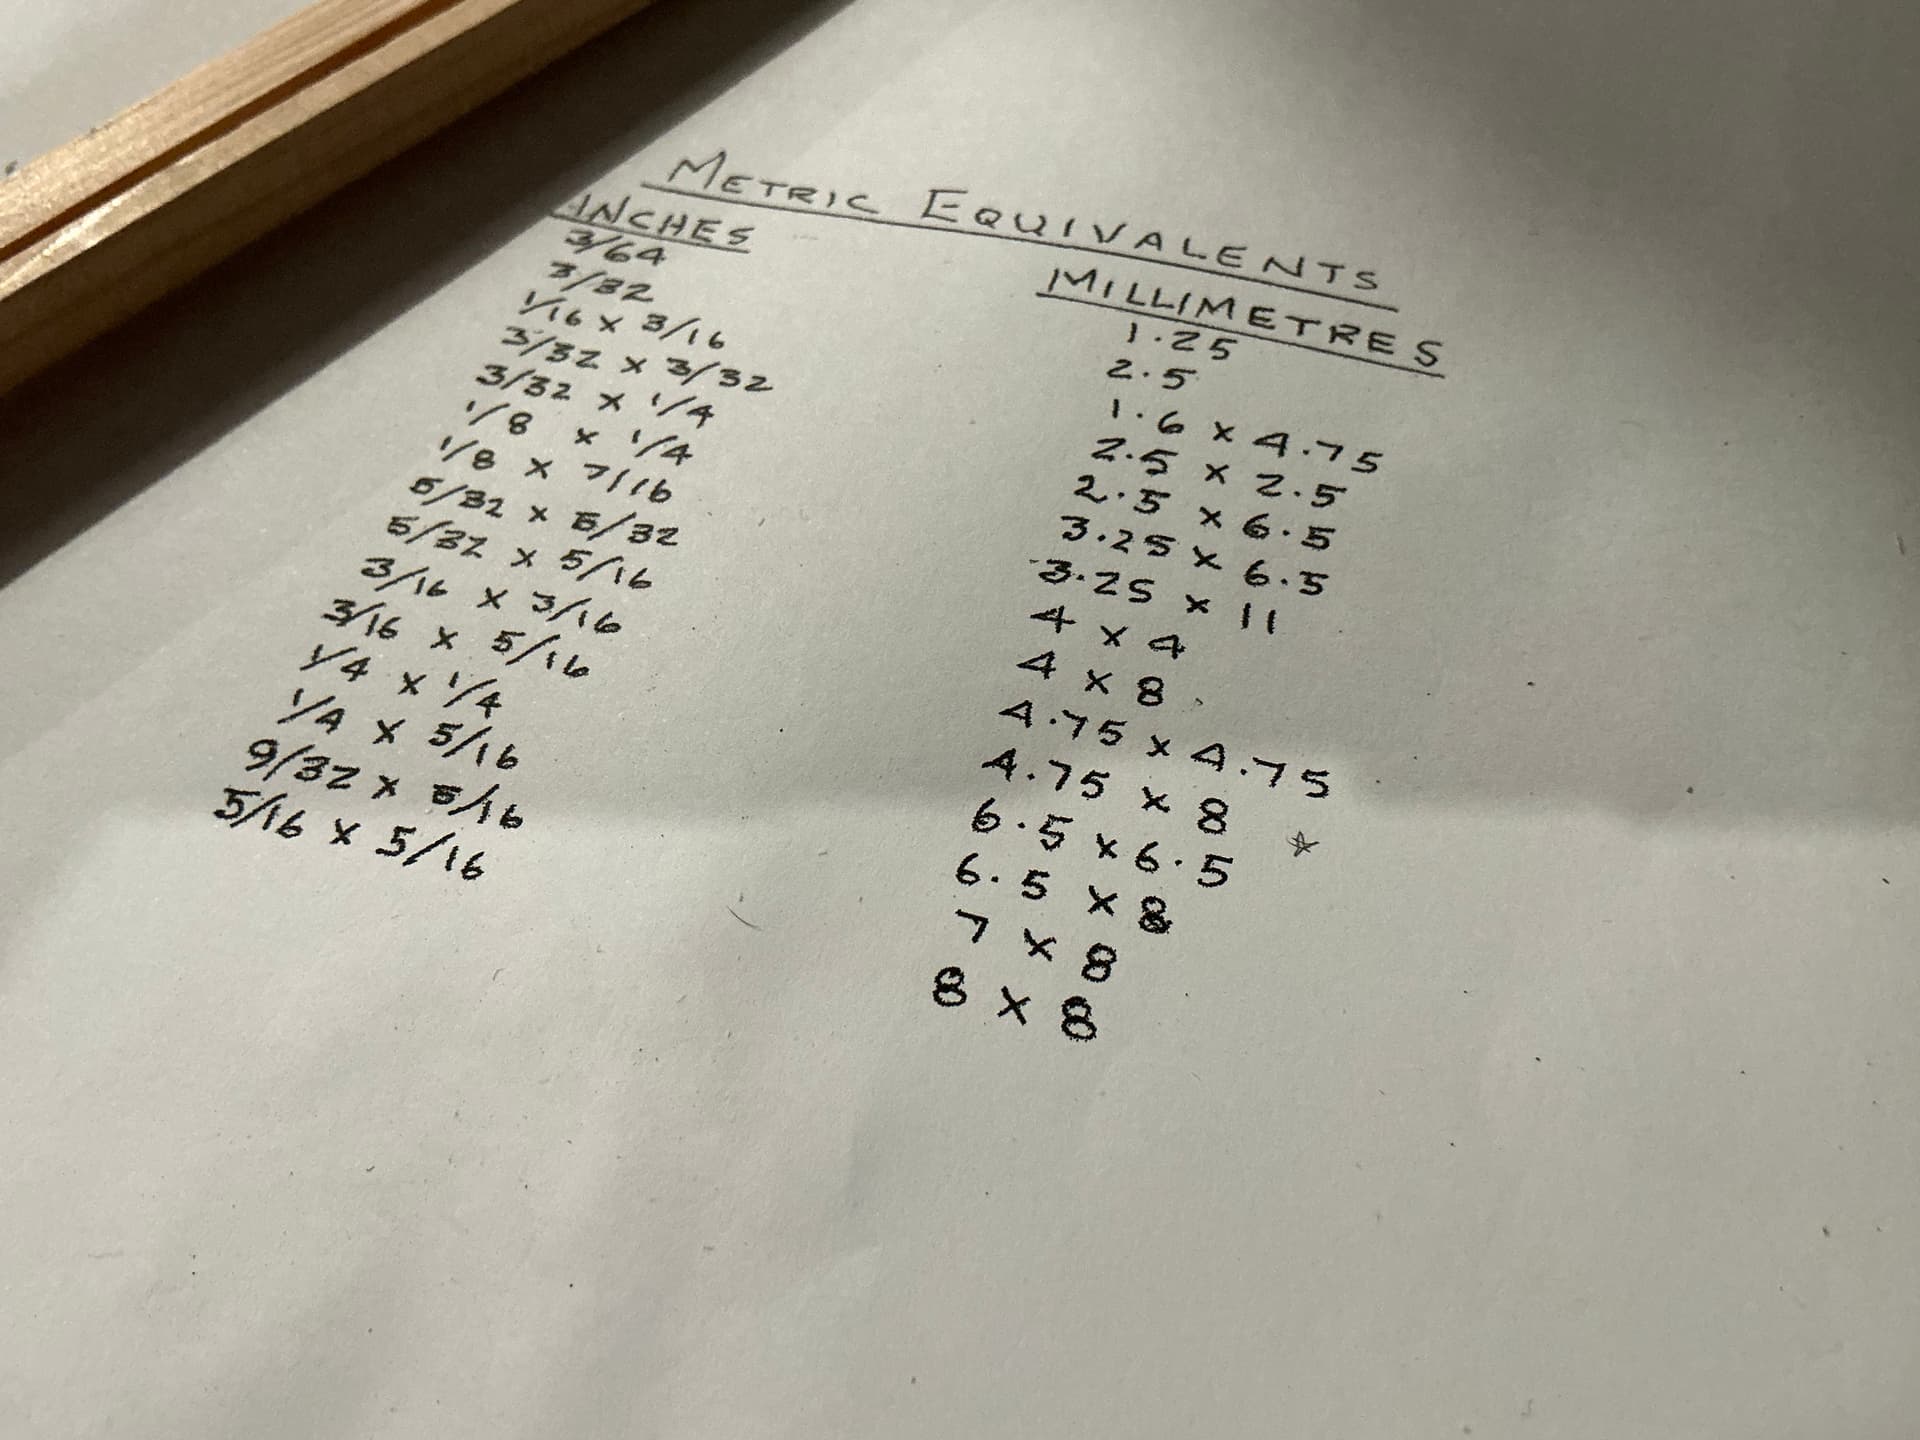 METRIC EQUIVALENTS
INCHES MILLIMETRES
3/64 1.25
3/32 2.5
1/16 x 3/16 1.6 x 4.75
3/32 x 3/32 2.5 x 2.5
3/32 x 1/4 2.5 x 6.5
1/8 x 1/4 3.25 x 6.5
1/8 x 7/16 3.25 x 11
5/32 x 5/32 4 x 4
5/32 x 5/16 4 x 8
3/16 x 3/16 4.75 x 4.75
3/16 x 5/16 4.75 x 8
1/4 x 1/4 6.5 x 6.5
1/4 x 5/16 6.5 x 8
9/32 x 5/16 7 x 8
5/16 x 5/16 8 x 8